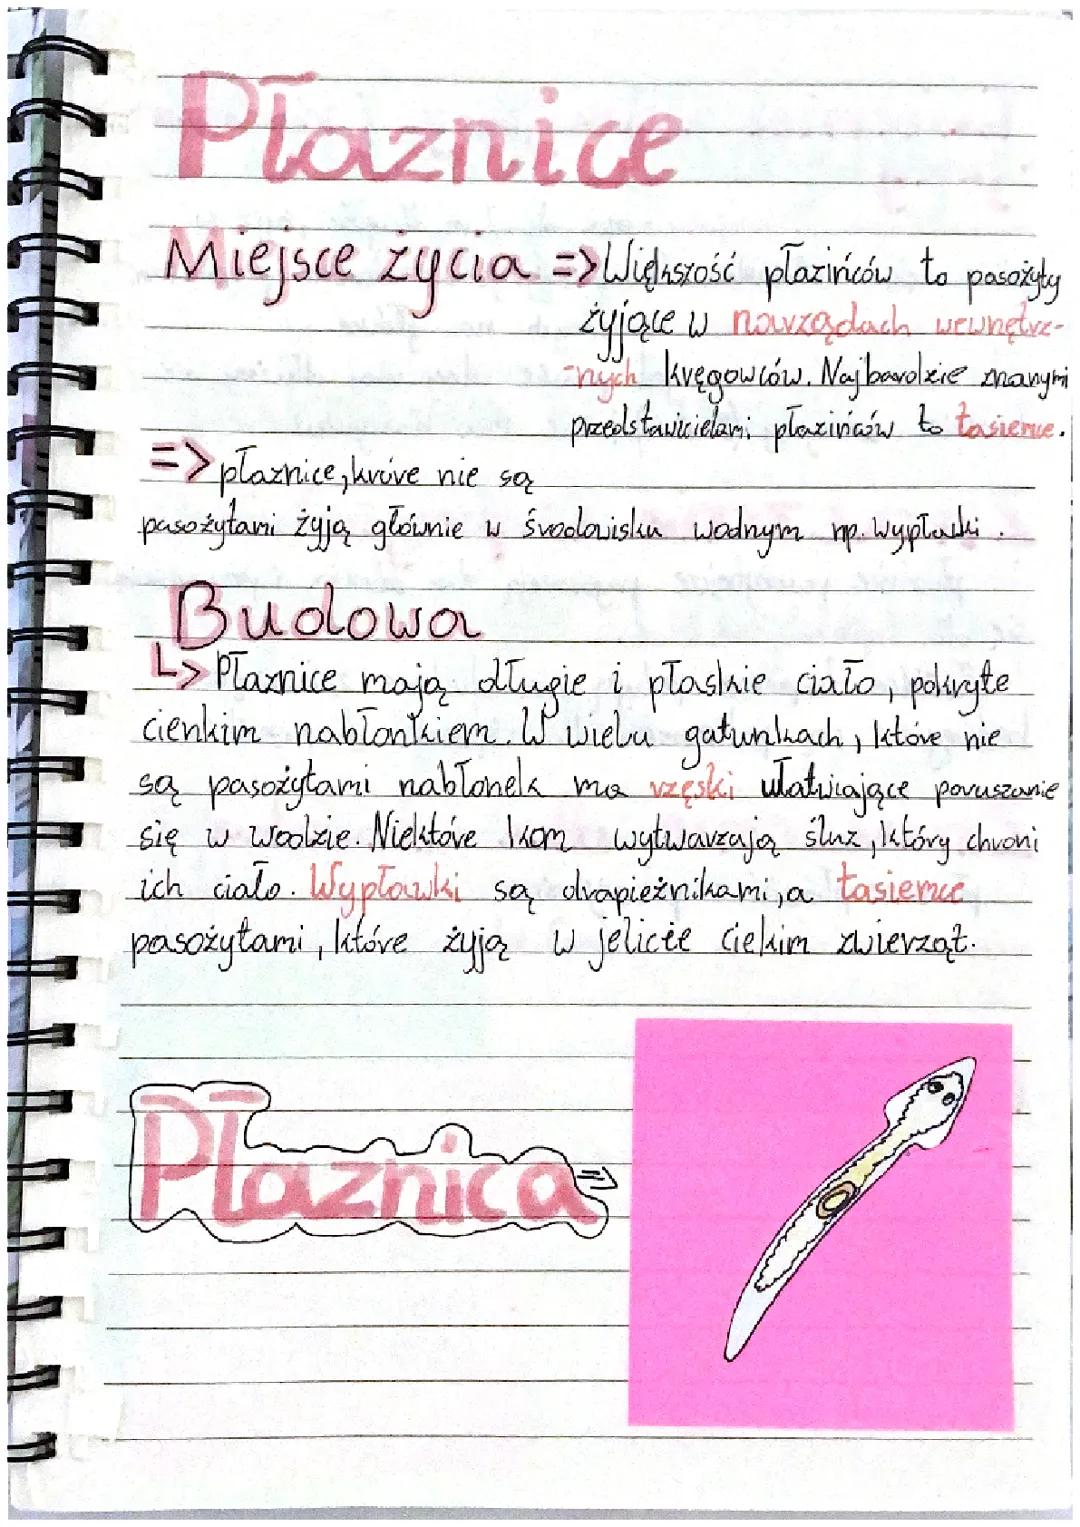 Płaznice
Miejsce życia => Większość płazińców to pasożyty
żyjące w narządach wewnętrz-
-nych kręgowców. Najbardzie znanymi
przedstawicielami płazińców to tasiemce.
=> płaznice, które nie są
pasożytami żyją głównie w środowisku wodnym np. wypławki.
Budowa
↳> Płaznice mają długie i płaskie ciało, pokryte
cienkim nabłonkiem. W wielu gatunkach, które nie
są pasożytami nabłonek ma rzęski ułatwiające poruszanie
się w wodzie. Niektóre kom wytwarzają śluz, który chroni
ich ciało. Wypławki są drapieżnikami, a tasiemce
pasożytami, które żyją w jelicie zwierząt.
Płaznica =>